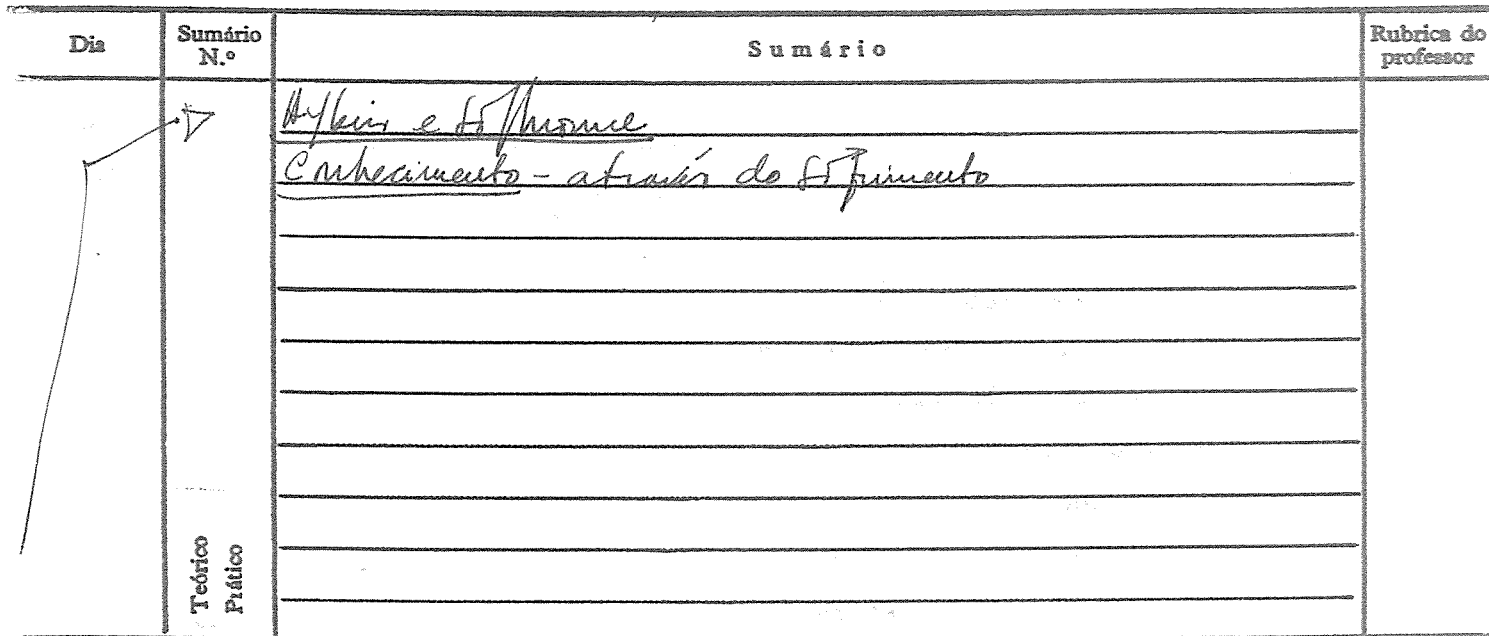 Dia Sumário N.º Sumário Rubrica do professor
Hybris e Sophrosyne
Conhecimento - através do sofrimento
Teórico
Prático